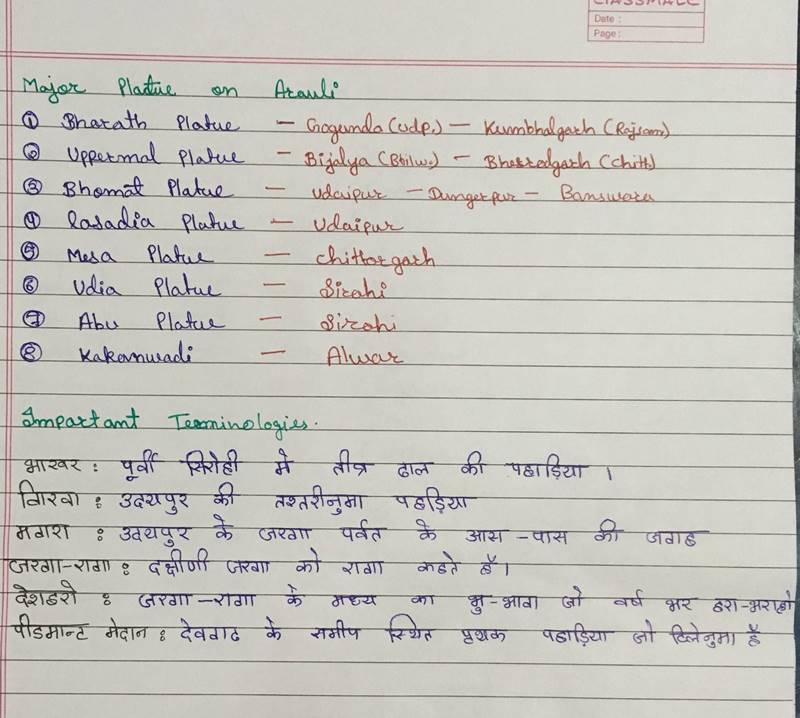 CLASSMATE
Date :
Page :
Major Platue on Aravli
① Bharath Platue — Gogunda (Udp.) — Kumbhalgarh (Rajsam)
② Uppermal Platue — Bijalya (Bhilw.) — Bhesrodgarh (Chitt)
③ Bhomat Platue — Udaipur — Dungerpur — Banswara
④ Lasadia Platue — Udaipur
⑤ Mesa Platue — Chittorgarh
⑥ Udia Platue — Sirohi
⑦ Abu Platue — Sirohi
⑧ Kakanwadi — Alwar
Important Terminologies.
भाखर : पूर्वी सिरोही मे तीव्र ढाल की पहाड़िया ।
गिरवा : उदयपुर की तश्तरीनुमा पहड़िया
मगरा : उदयपुर के जरगा पर्वत के आस-पास की जगह
जरगा-रागा : दक्षीणी जरगा को रागा कहते हैं।
देशहरो : जरगा-रागा के मध्य का भु-भाग जो वर्ष भर हरा-भराहो
पीडमान्ट मेदान : देवगढ के समीप स्थित पृथक पहाड़िया जो टिलेनुमा हैं